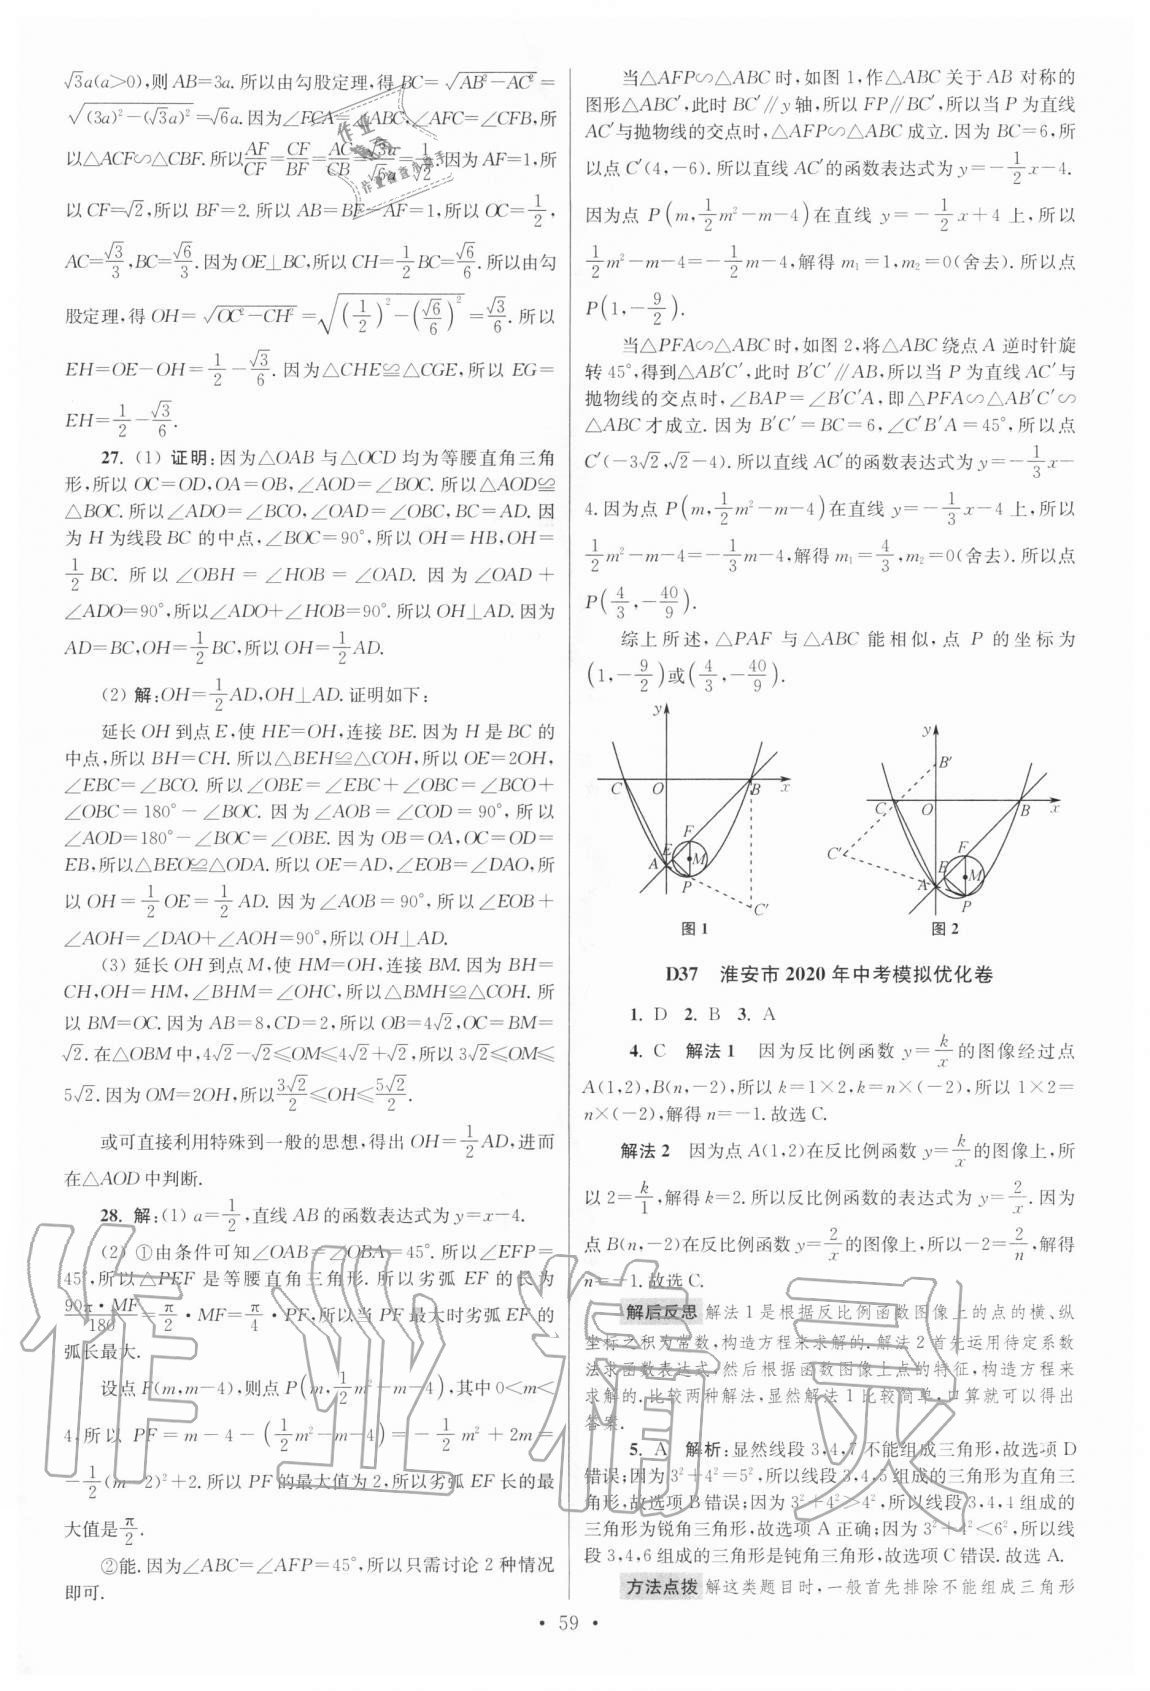 √3a(a>0),则 AB=3a. 所以由勾股定理,得 BC=√(AB²-AC²)=
√((3a)²-(√3a)²)=√6a. 因为∠FCA=∠ABC,∠AFC=∠CFB,所
以△ACF∽△CBF. 所以AF/CF=CF/BF=AC/CB=√3a/√6a=1/√2. 因为 AF=1,所
以 CF=√2,所以 BF=2. 所以 AB=BF-AF=1,所以 OC=1/2,
AC=√3/3,BC=√6/3. 因为 OE⊥BC,所以 CH=1/2BC=√6/6. 所以由勾
股定理,得 OH=√(OC²-CH²)=√((1/2)²-(√6/6)²)=√3/6. 所以
EH=OE-OH=1/2-√3/6. 因为△CHE≌△CGE,所以 EG=
EH=1/2-√3/6.
27. (1) 证明:因为△OAB 与△OCD 均为等腰直角三角
形,所以 OC=OD,OA=OB,∠AOD=∠BOC. 所以△AOD≌
△BOC. 所以∠ADO=∠BCO,∠OAD=∠OBC,BC=AD. 因
为 H 为线段 BC 的中点,∠BOC=90°,所以 OH=HB,OH=
1/2BC. 所以∠OBH=∠HOB=∠OAD. 因为∠OAD+
∠ADO=90°,所以∠ADO+∠HOB=90°. 所以 OH⊥AD. 因为
AD=BC,OH=1/2BC,所以 OH=1/2AD.
(2) 解:OH=1/2AD,OH⊥AD. 证明如下:
延长 OH 到点 E,使 HE=OH,连接 BE. 因为 H 是 BC 的
中点,所以 BH=CH. 所以△BEH≌△COH,所以 OE=2OH,
∠EBC=∠BCO. 所以∠OBE=∠EBC+∠OBC=∠BCO+
∠OBC=180°-∠BOC. 因为∠AOB=∠COD=90°,所以
∠AOD=180°-∠BOC=∠OBE. 因为 OB=OA,OC=OD=
EB,所以△BEO≌△ODA. 所以 OE=AD,∠EOB=∠DAO,所
以 OH=1/2OE=1/2AD. 因为∠AOB=90°,所以∠EOB+
∠AOH=∠DAO+∠AOH=90°,所以 OH⊥AD.
(3) 延长 OH 到点 M,使 HM=OH,连接 BM. 因为 BH=
CH,OH=HM,∠BHM=∠OHC,所以△BMH≌△OCH,所
以 BM=OC. 因为 AB=8,CD=2,所以 OB=4√2,OC=BM=
√2. 在△OBM 中,4√2-√2≤OM≤4√2+√2,所以 3√2≤OM≤
5√2. 因为 OM=2OH,所以3√2/2≤OH≤5√2/2.
或可直接利用特殊到一般的思想,得出 OH=1/2AD,进而
在△AOD 中判断.
28. 解:(1) a=1/2,直线 AB 的函数表达式为 y=x-4.
(2) ①由条件可知∠OAB=∠OBA=45°. 所以∠EFP=
45°,所以△PEF 是等腰直角三角形. 所以劣弧 EF 的长为
90π·MF/180=π/2·MF=π/4·PF,所以当 PF 最大时劣弧 EF 的
弧长最大.
设点 F(m,m-4),则点 P(m,1/2m²-m-4),其中 0<m<
4,所以 PF=m-4-(1/2m²-m-4)=-1/2m²+2m=
-1/2(m-2)²+2. 所以 PF 的最大值为 2,所以劣弧 EF 长的最
大值是π/2.
②能. 因为∠ABC=∠AFP=45°,所以只需讨论 2 种情况
即可.
当△AFP∽△ABC 时,如图 1,作△ABC 关于 AB 对称的
图形△ABC′,此时 BC′∥y 轴,所以 FP∥BC′,所以当 P 为直线
AC′与抛物线的交点时,△AFP∽△ABC 成立. 因为 BC=6,所
以点 C′(4,-6). 所以直线 AC′的函数表达式为 y=-1/2x-4.
因为点 P(m,1/2m²-m-4)在直线 y=-1/2x+4 上,所以
1/2m²-m-4=-1/2m-4,解得 m₁=1,m₂=0(舍去). 所以点
P(1,-9/2).
当△PFA∽△ABC 时,如图 2,将△ABC 绕点 A 逆时针旋
转 45°,得到△AB′C′,此时 B′C′∥AB,所以当 P 为直线 AC′与
抛物线的交点时,∠BAP=∠B′C′A,即△PFA∽△AB′C′∽
△ABC 才成立. 因为 B′C′=BC=6,∠C′B′A=45°,所以点
C′(-3√2,√2-4). 所以直线 AC′的函数表达式为 y=-1/3x-
4. 因为点 P(m,1/2m²-m-4)在直线 y=-1/3x-4 上,所以
1/2m²-m-4=-1/3m-4,解得 m₁=4/3,m₂=0(舍去). 所以点
P(4/3,-40/9).
综上所述,△PAF 与△ABC 能相似,点 P 的坐标为
(1,-9/2)或(4/3,-40/9).
y C O B x F E A M P C′
图 1
y B′ C O B x C′ F E A M P
图 2
D37 淮安市 2020 年中考模拟优化卷
1. D 2. B 3. A
4. C 解法 1 因为反比例函数 y=k/x的图像经过点
A(1,2),B(n,-2),所以 k=1×2,k=n×(-2),所以 1×2=
n×(-2),解得 n=-1. 故选 C.
解法 2 因为点 A(1,2)在反比例函数 y=k/x的图像上,所
以 2=k/1,解得 k=2. 所以反比例函数的表达式为 y=2/x. 因为
点 B(n,-2)在反比例函数 y=2/x的图像上,所以-2=2/n,解得
n=-1. 故选 C.
解后反思 解法 1 是根据反比例函数图像上的点的横、纵
坐标之积为常数,构造方程来求解的. 解法 2 首先运用待定系数
法求函数表达式,然后根据函数图像上点的特征,构造方程来
求解的. 比较两种解法,显然解法 1 比较简单,口算就可以得出
答案.
5. A 解析:显然线段 3,4,7 不能组成三角形,故选项 D
错误;因为 3²+4²=5²,所以线段 3,4,5 组成的三角形为直角三
角形,故选项 B 错误;因为 3²+4²>4²,所以线段 3,4,4 组成的
三角形为锐角三角形,故选项 A 正确;因为 3²+4²<6²,所以线
段 3,4,6 组成的三角形是钝角三角形,故选项 C 错误. 故选 A.
方法点拨 解这类题目时,一般首先排除不能组成三角形
• 59 •
作业精灵